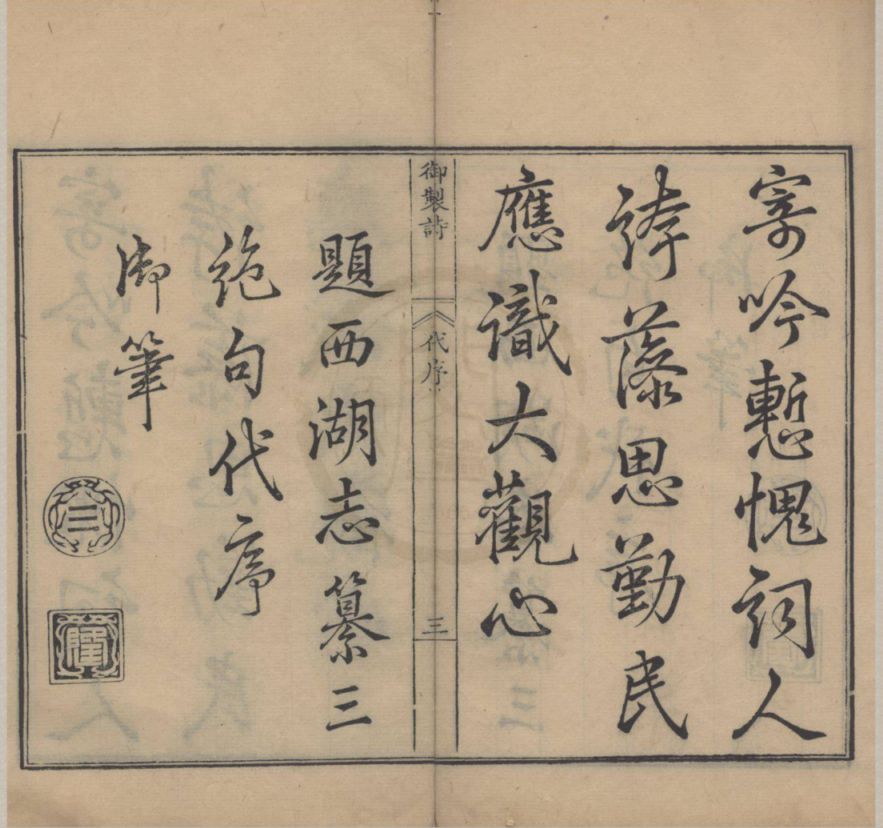 寄吟慙愧詞人
誇藻思勤民
應識大觀心
御製詩
代序
三
題西湖志纂三
絶句代序
御筆
隆